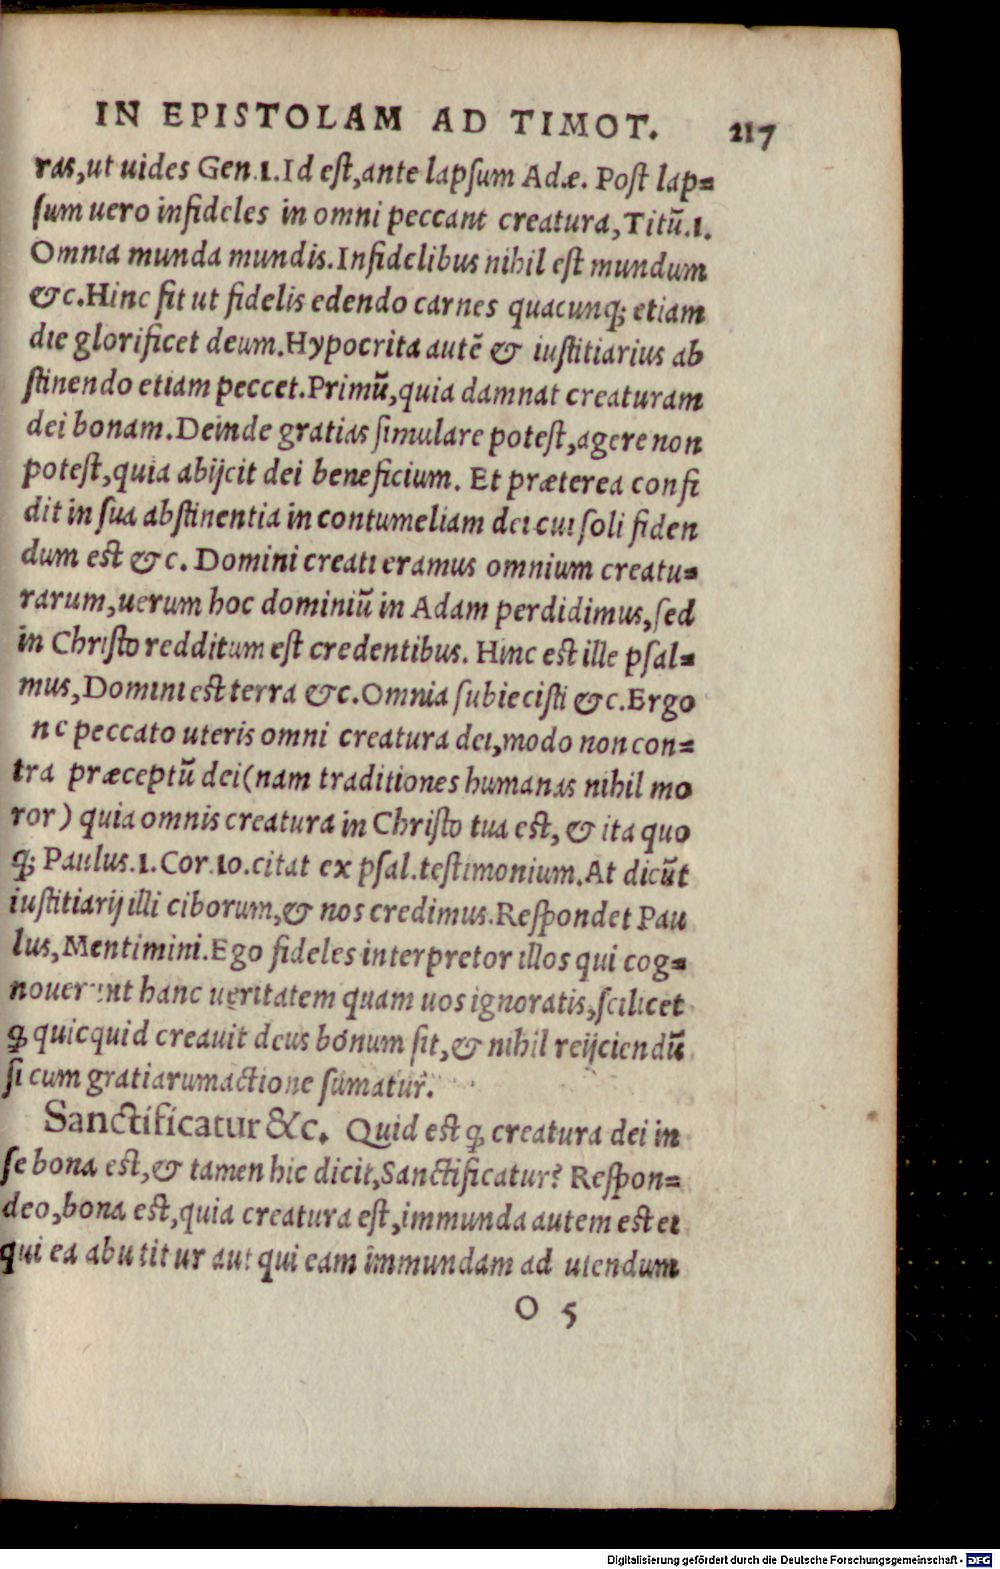 IN EPISTOLAM AD TIMOT. 217
ras,ut uides Gen.1.Id eſt,ante lapſum Adæ. Poſt lap=
ſum uero infideles in omni peccant creatura,Titũ.1.
Omnia munda mundis.Infidelibus nihil eſt mundum
&c.Hinc fit ut fidelis edendo carnes quacunq; etiam
die glorificet deum.Hypocrita autẽ & iuſtitiarius ab
ſtinendo etiam peccet.Primũ,quia damnat creaturam
dei bonam.Deinde gratias ſimulare poteſt,agere non
poteſt,quia abijcit dei beneficium. Et præterea confi
dit in ſua abſtinentia in contumeliam dei cui ſoli fiden
dum eſt &c. Domini creati eramus omnium creatu=
rarum,uerum hoc dominiũ in Adam perdidimus,ſed
in Chriſto redditum eſt credentibus. Hinc eſt ille pſal=
mus,Domini eſt terra &c.Omnia ſubieciſti &c.Ergo
ne peccato uteris omni creatura dei,modo non con=
tra præceptũ dei(nam traditiones humanas nihil mo
ror) quia omnis creatura in Chriſto tua eſt, & ita quo
q; Paulus.1.Cor.10.citat ex pſal.teſtimonium.At dicũt
iuſtitiarij illi ciborum,& nos credimus.Reſpondet Pau
lus,Mentimini.Ego fideles interpretor illos qui cog=
nouerunt hanc ueritatem quam uos ignoratis,ſcilicet
ꝙ quicquid creauit deus bonum ſit,& nihil reijciendũ
ſi cum gratiarumactione ſumatur.
Sanctificatur &c. Quid eſt ꝙ creatura dei in
ſe bona eſt,& tamen hic dicit,Sanctificatur? Reſpon=
deo,bona eſt,quia creatura eſt,immunda autem eſt ei
qui ea abutitur aut qui eam immundam ad utendum
O 5
Digitalisierung gefördert durch die Deutsche Forschungsgemeinschaft - DFG